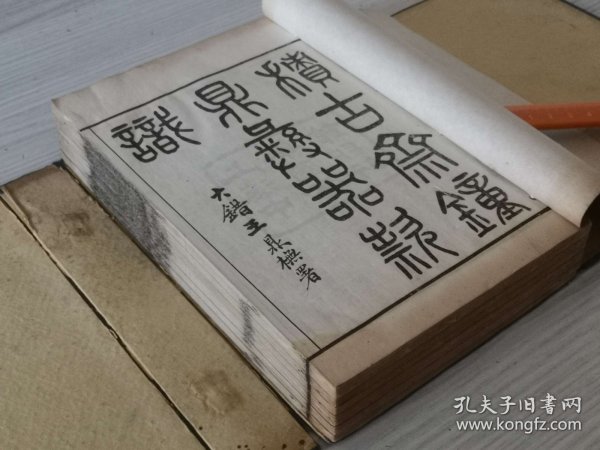 積古齋鐘
鼎彝器款
識
大錯王鼎橅署
孔夫子旧书网
www.kongfz.com